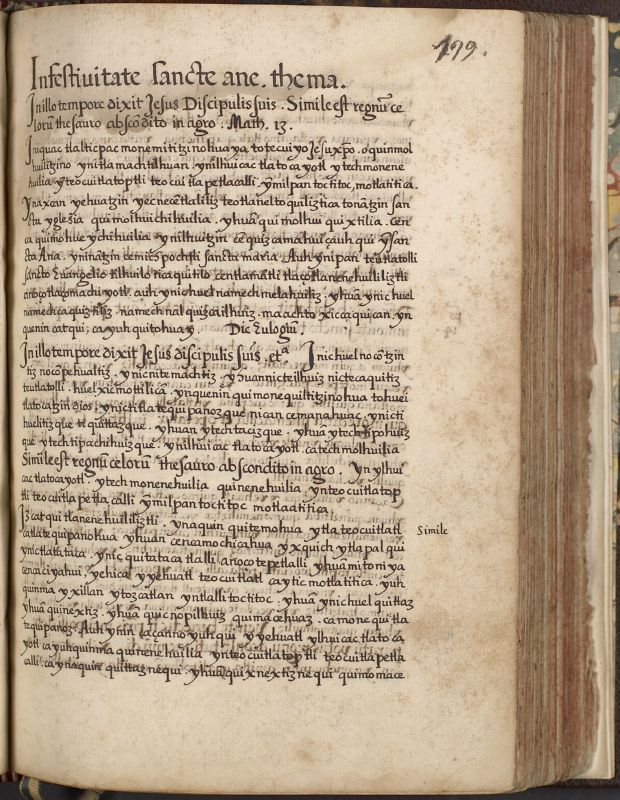 199.
Infestiuitate sancte ane. thema.
In illo tempore dixit Jesus Discipulis suis. Simile est regnū ce
lorū thesauro abscōdito in agro. Math. 13.
Inquac tlalticpac monemititzinohuaya totecuiyo Jesu xp̄o. oquimol
huilitzino ynitlamachtilhuan. ynilhuicac tlatocayotl ytechmonene
huilia yteocuitlatoptli teocuitlapetlacalli. ymilpan toctitoc, motlatitica.
Ynaxcan yehuatzin yecnecētlaliliz teotlaneltoquiliztica tonātzin san
cta yglesia quimolhuichihuilia. yhuā quimolhuiquixtilia. Cen
ca quimohuechihuilia ynilhuitzin cēquizcamahuiçauhqui ysan
cta Ana. ynināntzin cemicac pochtli sancta maria. Auh ynipan teutlatolli
sancto Euangelio
auh ynic huel namechmelahuiliz. yhuā ynic huel
namechcaquiztiliz. ma achto xiccaquican. yn
quenin catqui; ca yuh quitohua y. Dic Eulogiū.
In illo tempore dixit Jesus discipulis suis. etᵃ. Inic huel noconitzin
tiz noconpehualtiz. ynicnitemachtiz. yhuan nictēilhuiz nictecaquitiz
teutlatolli. huel xicmottilicā. ynquenin quimonequiltitzinohua tohuei
tlatocatzin dios. ynictitlatequipanozque nican cemanahuac. ynicti
huelitizque tiquittazque. yhuan ytechtacizque. yhuā ytechtipohuiz
que ytechtipachihuizque. ynilhuicac tlatocayotl. catechmolhuilia
Simile est regnū celorū thesauro abscondito in agro. Yn ylhui
cac tlatocayotl. ytech monenehuilia quinenehuilia. ynteocuitlatop
tli teocuitlapetlacalli ymilpan toctitoc motlatitica.
Iz catqui tlanenehuililiztli. ynaquin quitemohua ytla teocuitlatl
Simile
catlatequipanohua yhuan cencamochicahua yxquich ytlapal qui
ynic tlatataca. ynic quitataca tlalli anoço tepetlalli yhuā mitoniya
cenca ciyahui. yehica yyehuatl teocuitlatl caytic motlatitica. yuh
quinma yxillan ytozcatlan yntlalli toctitoc. yhuā ynic huel quittaz
yhuā quinextiz. yhuā quicnopilhuiz quimacehuaz. camonequi tla
tequipanoz. Auh ynin çaçanino yuhqui yyehuatl ylhuicac tlatoca
yotl ca yuhquinma quinenehuilia ynteocuitlatoptli teocuitlapetla
calli. ca ynaquin quittaznequi. yhuā quixnextiznequi quimomace